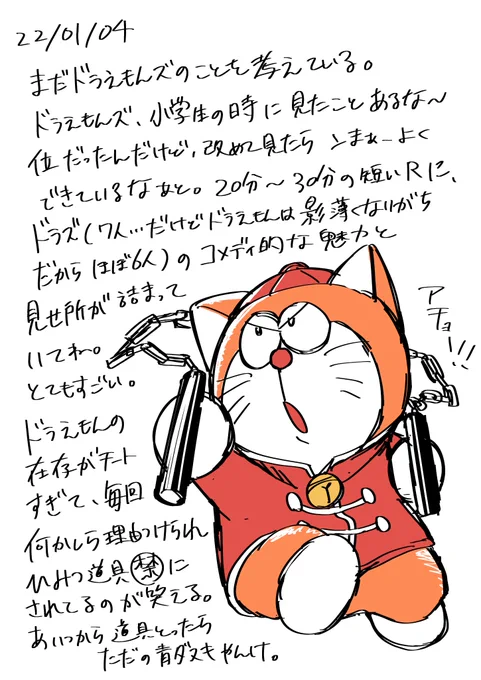 22/01/04
まだドラえもんズのことを考えている。
ドラえもんズ、小学生の時に見たことあるな〜
位だったんだけど、改めて見たら んまぁーよく
できているなぁと。20分〜30分の短いRに、
ドラズ(7人…だけどドラえもんは影薄くなりがち
だからほぼ6人)のコメディ的な魅力と
見せ所が詰まって
いてね。
とてもすごい。
アチョー!!
ドラえもんの
在存がチート
すぎて、毎回
何かしら理由つけられ
ひみつ道具禁に
されてるのが笑える。
あいつから道具とったら
ただの青ダヌキやんけ。